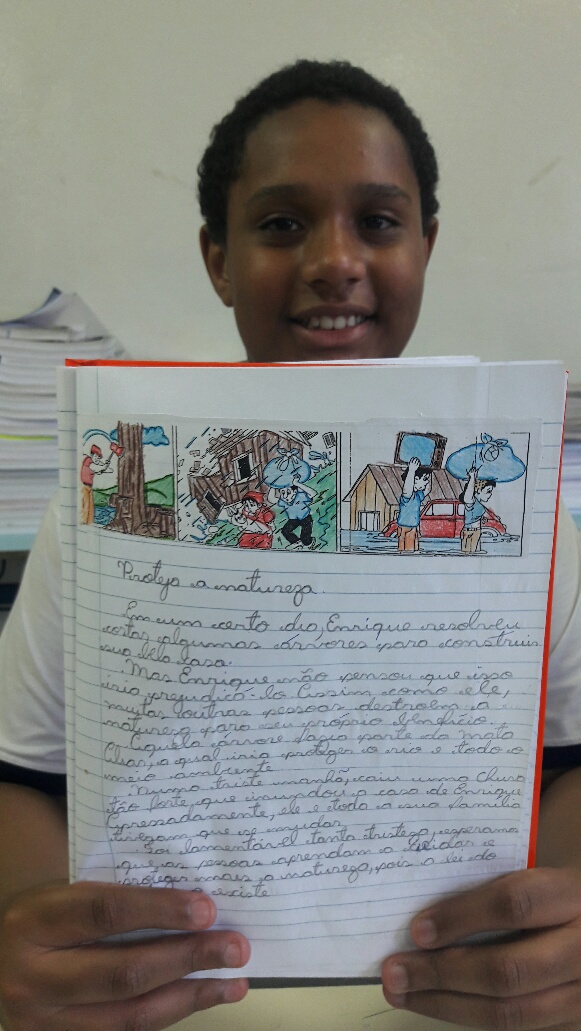 Proteja a natureza.
Em um certo dia, Enrique resolveu
cortar algumas árvores para construir
sua bela casa.
Mas Enrique não pensou que isso
iria prejudicá-lo Assim como ele,
muitas outras pessoas destroem a
natureza para seu próprio benefício.
Aquela árvore fazia parte da mata
Ciliar, a qual iria proteger o rio e todo o
meio ambiente
Numa triste manhã, caiu uma chuva
tão forte, que inundou a casa de Enrique
Apressadamente, ele e toda a sua família
tiveram que se mudar.
Foi lamentável tanta tristeza, esperamos
que as pessoas aprendam a cuidar e
proteger mais a natureza, pois a lei do
existe